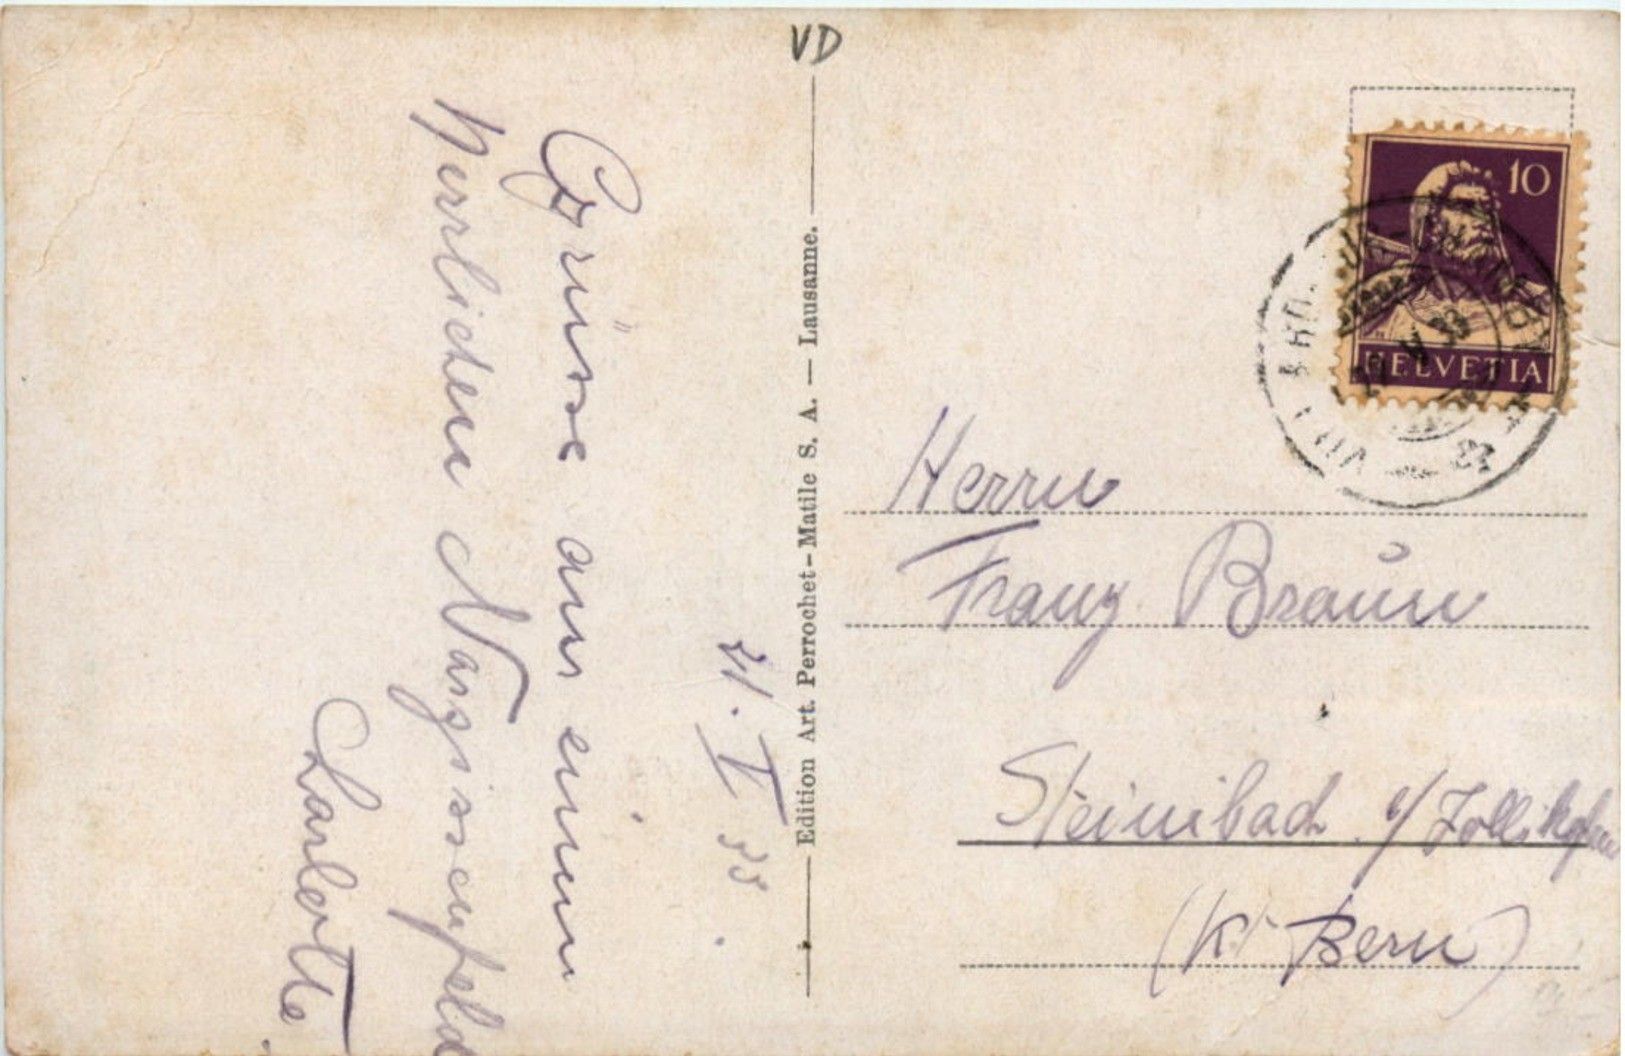 VD
21. V 33.
Grüsse aus einem
herrlichen Nargissenfeld
Charlotte.
Edition Art. Perrochet-Matile S. A. — Lausanne.
10
HELVETIA
V 33
Herrn
Franz Braun
Steinibach
(Kt. Bern)